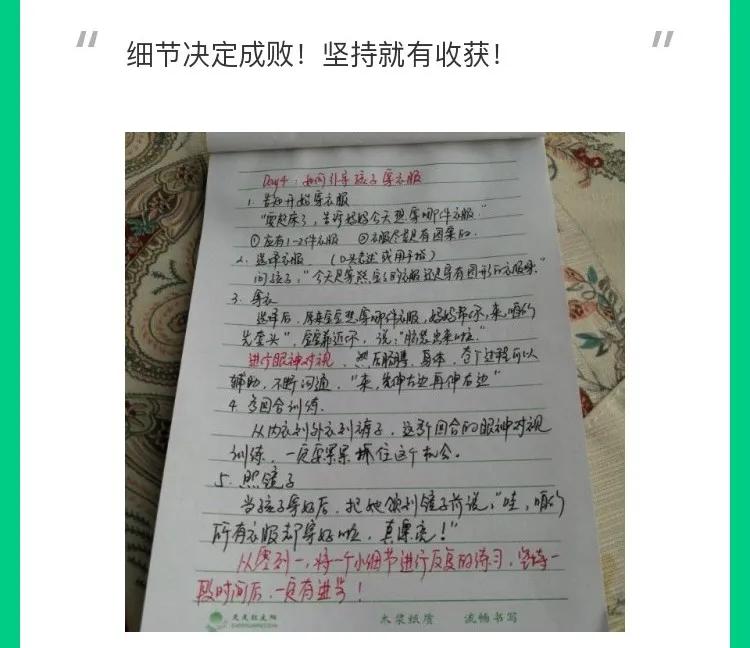 细节决定成败！坚持就有收获！
Day4：如何引导孩子穿衣服
1. 告知开始穿衣服
"要起床了，告诉妈妈今天想穿哪件衣服."
①应有1-2件衣服 ②衣服尽量是有图案的.
2. 选择衣服 （口头表述或用手指）
问孩子，"今天是穿熊宝宝的衣服还是穿有图形的衣服呀."
3. 穿衣
选择后，原来宝宝想穿哪件衣服，妈妈帮你，来，咱们
先套头"，宝宝靠近你，说，"脑袋出来啦."
进行眼神对视，然后胳膊、身体，整个过程可以
辅助，不断沟通，"来，先伸左边再伸右边"
4. 多回合训练.
从内衣到外衣到裤子，这多个回合的眼神对视
训练，一定要牢牢抓住这个机会。
5. 照镜子
当孩子穿好后，把她领到镜子前说，"哇，咱们
所有衣服都穿好啦，真漂亮！"
从零到一，将一个小细节进行反复的练习，坚持一
段时间后，一定有进步！
天天红太阳
木浆纸质 流畅书写